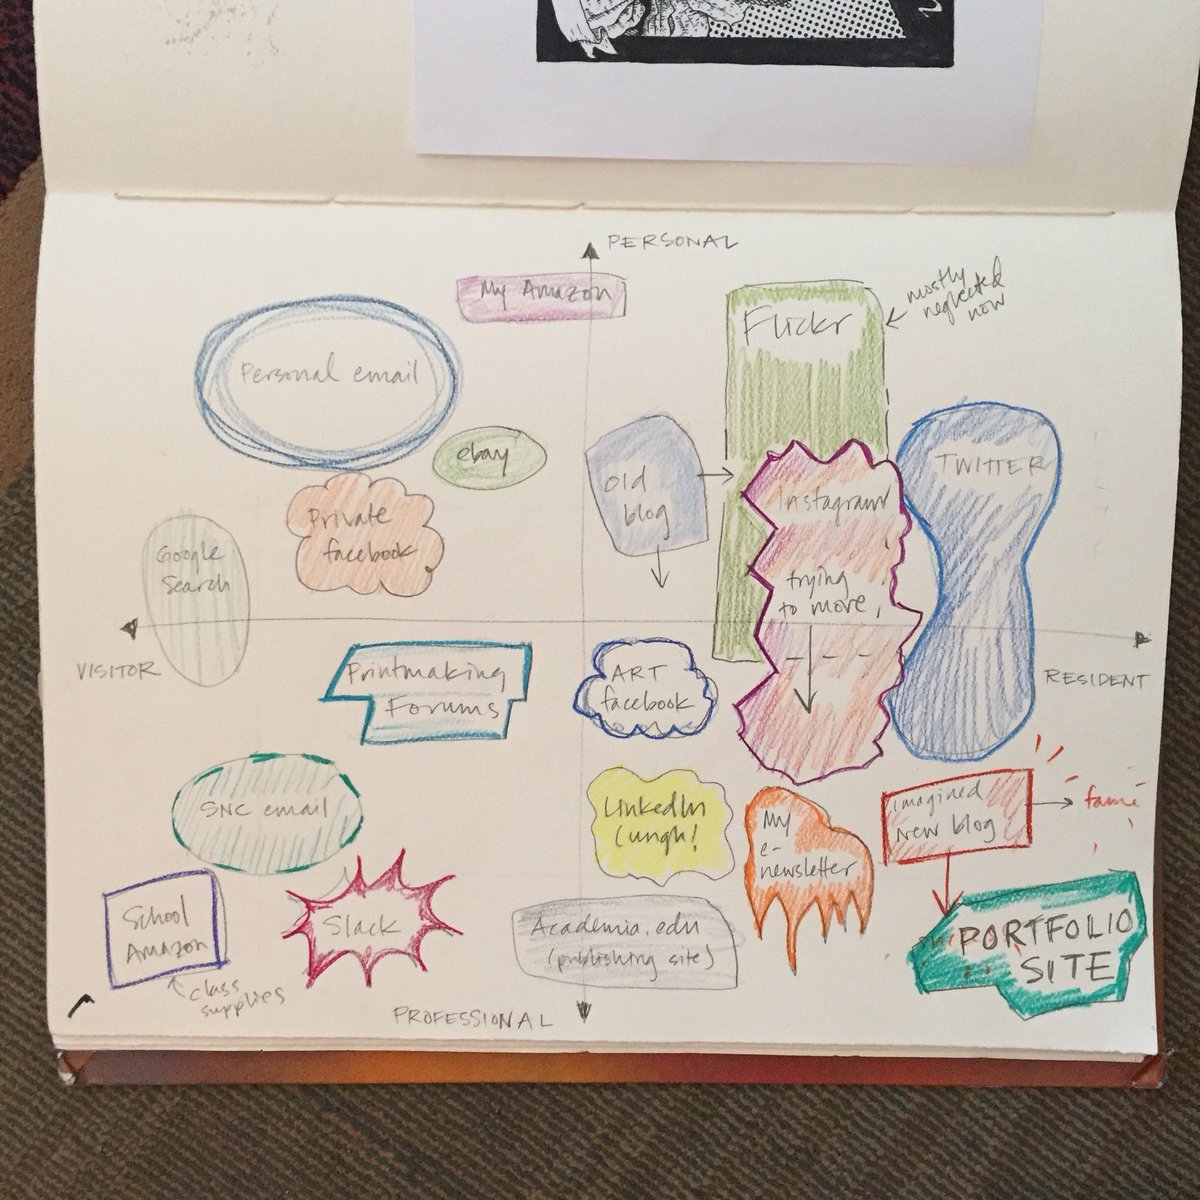 PERSONAL
My Amazon
Flickr
mostly
neglected
now
Personal email
ebay
old
blog
Instagram
trying
to move
TWITTER
Private
facebook
Google
Search
VISITOR
RESIDENT
Printmaking
Forums
ART
facebook
SNC email
LinkedIn
(ungh!
My
e-
newsletter
imagined
new blog
fame
School
Amazon
class
supplies
Slack
Academia.edu
(publishing site)
PORTFOLIO
SITE
PROFESSIONAL